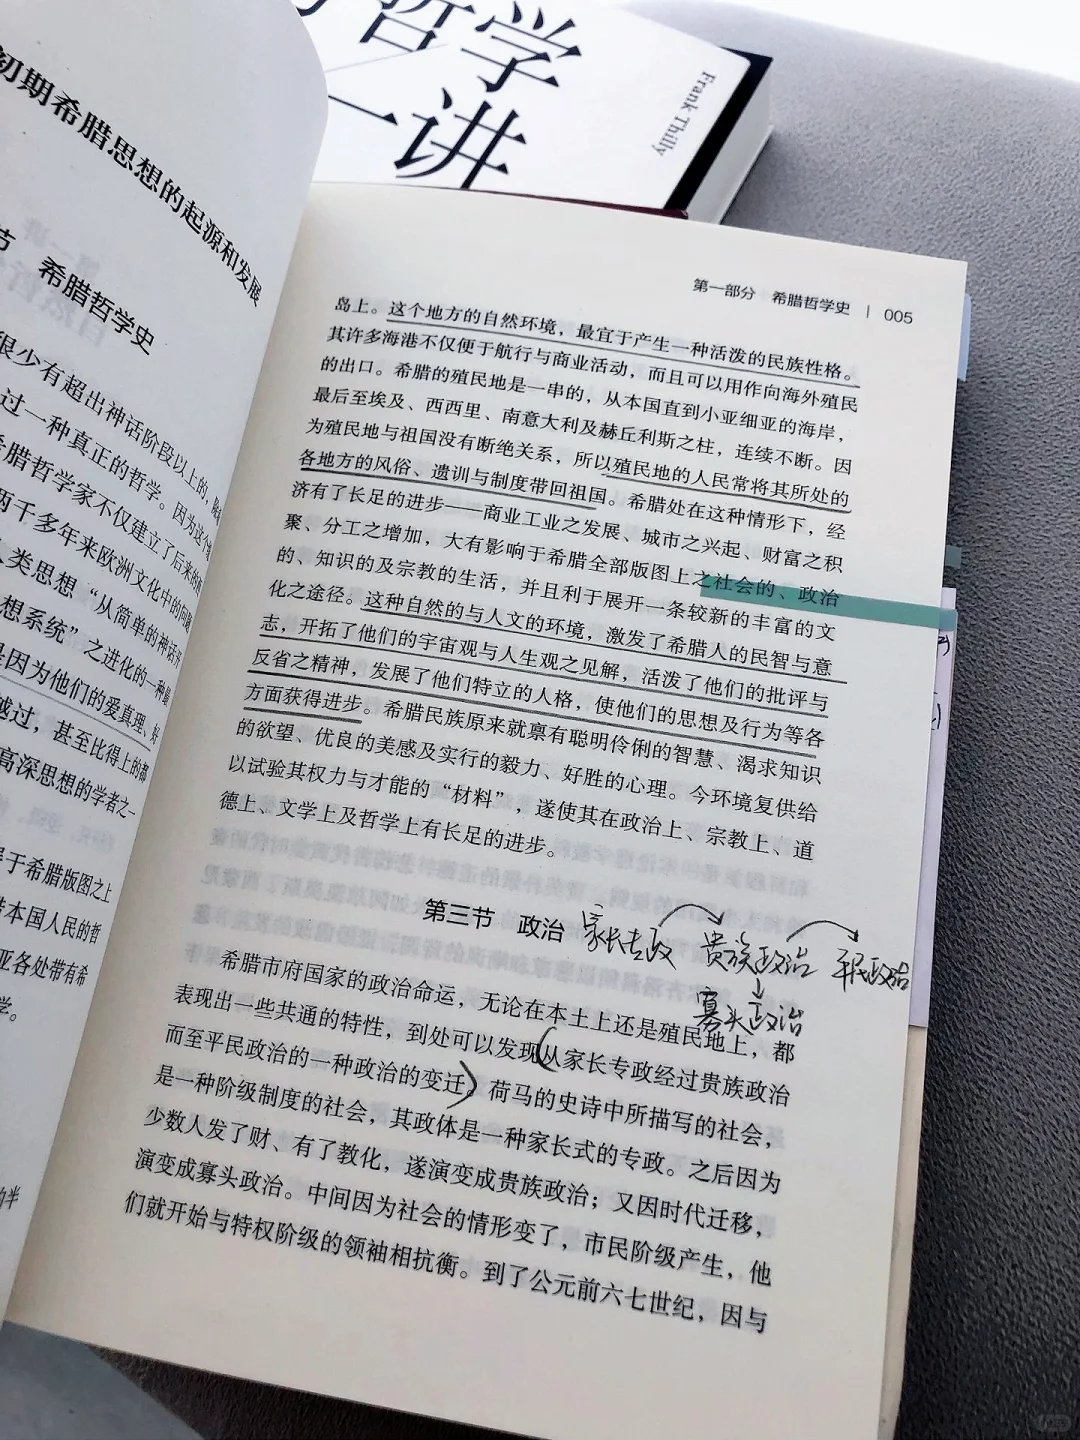 哲学
一讲
Frank Thilly
初期希腊思想的起源和发展
节 希腊哲学史
很少有超出神话阶段以上的,
过一种真正的哲学。因为这个
希腊哲学家不仅建立了后来的
两千多年来欧洲文化中的问题
人类思想“从简单的神话
想系统”之进化的一种最
是因为他们的爱真理,好
越过,甚至比得上的都
高深思想的学者之一
于希腊版图之上
本国人民的哲
亚各处带有希
学。
的半
第一部分 希腊哲学史 | 005
岛上。这个地方的自然环境,最宜于产生一种活泼的民族性格。
其许多海港不仅便于航行与商业活动,而且可以用作向海外殖民
的出口。希腊的殖民地是一串的,从本国直到小亚细亚的海岸,
最后至埃及、西西里、南意大利及赫丘利斯之柱,连续不断。因
为殖民地与祖国没有断绝关系,所以殖民地的人民常将其所处的
各地方的风俗、遗训与制度带回祖国。希腊处在这种情形下,经
济有了长足的进步——商业工业之发展、城市之兴起、财富之积
聚、分工之增加,大有影响于希腊全部版图上之社会的、政治
的、知识的及宗教的生活,并且利于展开一条较新的丰富的文
化之途径。这种自然的与人文的环境,激发了希腊人的民智与意
志,开拓了他们的宇宙观与人生观之见解,活泼了他们的批评与
反省之精神,发展了他们特立的人格,使他们的思想及行为等各
方面获得进步。希腊民族原来就禀有聪明伶俐的智慧、渴求知识
的欲望、优良的美感及实行的毅力、好胜的心理。今环境复供给
以试验其权力与才能的“材料”,遂使其在政治上、宗教上、道
德上、文学上及哲学上有长足的进步。
第三节 政治
家长专政 贵族政治 平民政治
寡头政治
希腊市府国家的政治命运,无论在本土上还是殖民地上,都
表现出一些共通的特性,到处可以发现(从家长专政经过贵族政治
而至平民政治的一种政治的变迁)。荷马的史诗中所描写的社会,
是一种阶级制度的社会,其政体是一种家长式的专政。之后因为
少数人发了财、有了教化,遂演变成贵族政治;又因时代迁移,
演变成寡头政治。中间因为社会的情形变了,市民阶级产生,他
们就开始与特权阶级的领袖相抗衡。到了公元前六七世纪,因与